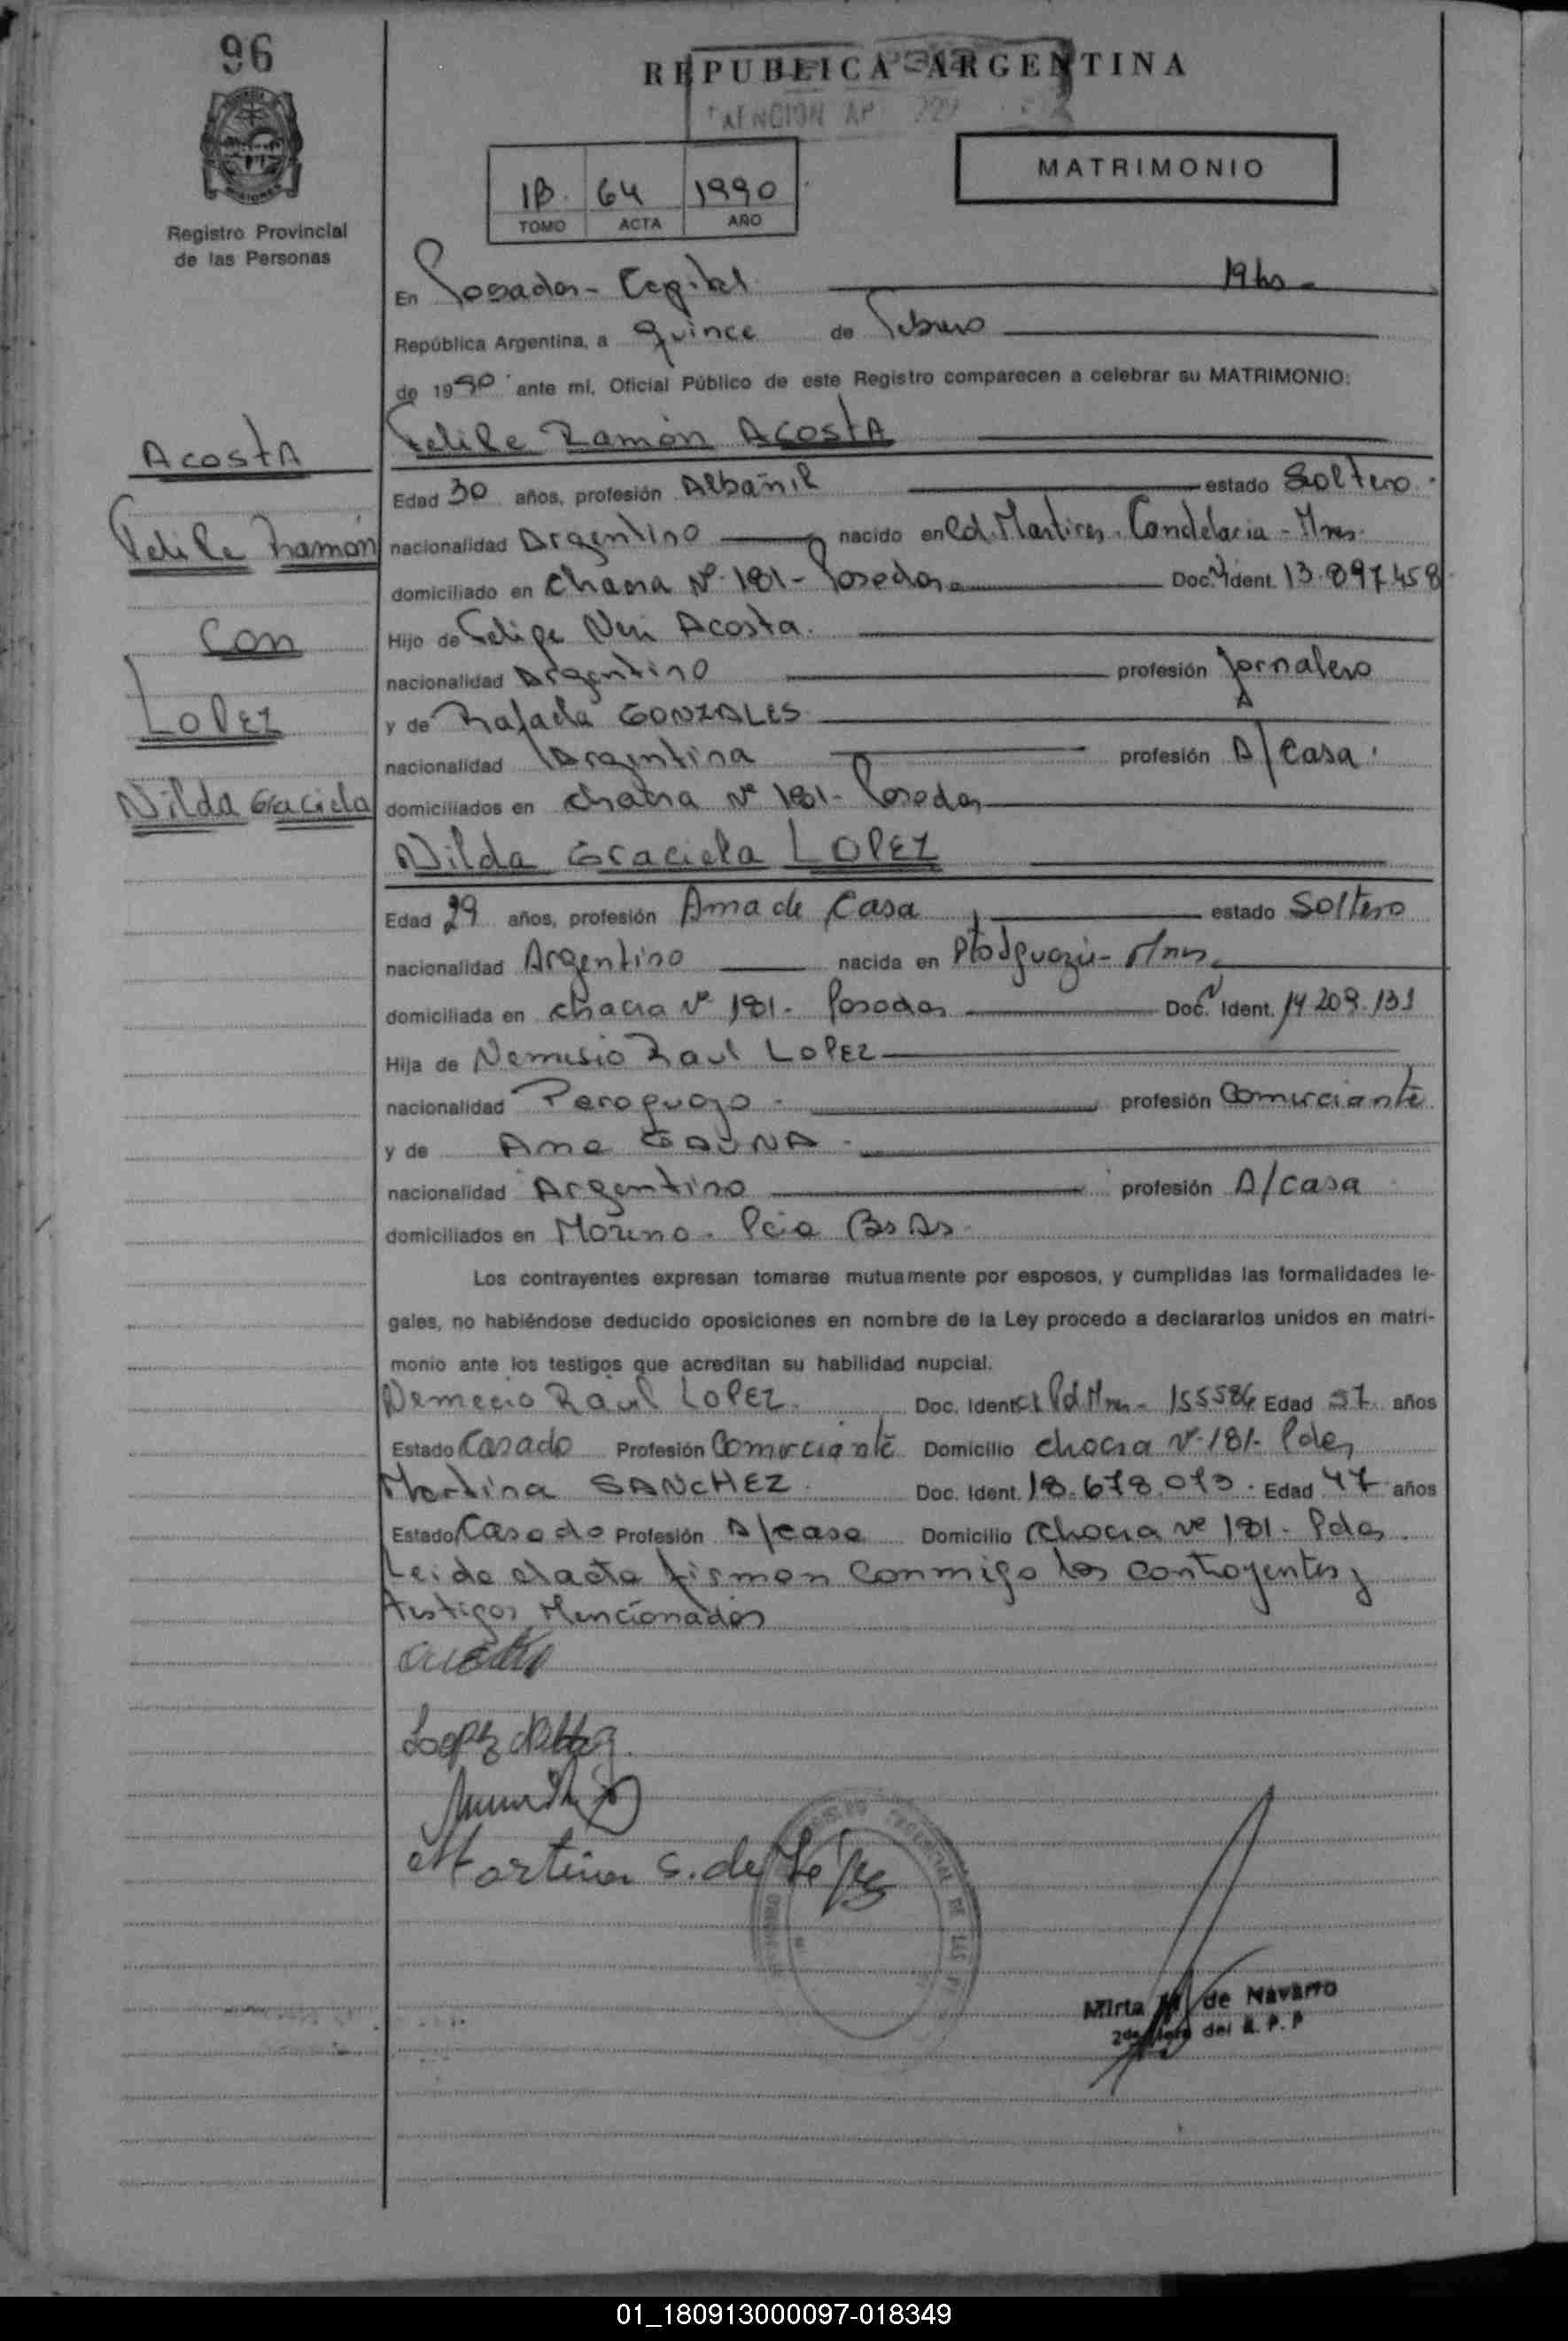 96
REPUBLICA ARGENTINA
MATRIMONIO
1B. 64 1990
TOMO ACTA AÑO
Registro Provincial
de las Personas
En Posadas - Capital 19 hs
República Argentina, a quince de Febrero
de 1990 ante mí, Oficial Público de este Registro comparecen a celebrar su MATRIMONIO:
Acosta
Felipe Ramón
Con
LOPEZ
Nilda Graciela
Felipe Ramón ACOSTA
Edad 30 años, profesión Albañil estado Soltero
nacionalidad Argentino nacido en Cd. Martires. Candelaria - Mnes.
domiciliado en Chacra Nº 181 - Posadas Doc. Ident. 13.897.458
Hijo de Felipe Neri Acosta.
nacionalidad Argentino profesión Jornalero
y de Rafaela GONZALES
nacionalidad Argentina profesión A/casa
domiciliados en chacra Nº 181 - Posadas
Nilda Graciela LOPEZ
Edad 29 años, profesión Ama de Casa estado Soltera
nacionalidad Argentina nacida en Pto Iguazú - Mnes
domiciliada en chacra Nº 181 - Posadas Doc. Ident. 14.209.131
Hija de Nemesio Raul LOPEZ
nacionalidad Paraguayo profesión Comerciante
y de Ana GAUNA
nacionalidad Argentina profesión A/casa
domiciliados en Moreno. Pcia Bs As.
Los contrayentes expresan tomarse mutuamente por esposos, y cumplidas las formalidades le-
gales, no habiéndose deducido oposiciones en nombre de la Ley procedo a declararlos unidos en matri-
monio ante los testigos que acreditan su habilidad nupcial.
Nemecio Raúl LOPEZ. Doc. Ident. CI Pol Mnes - 155586 Edad 57 años
Estado Casado Profesión Comerciante Domicilio chacra Nº 181 - Pdas
Martina SANCHEZ Doc. Ident. 18.678.073 Edad 47 años
Estado Casada Profesión A/casa Domicilio Chacra Nº 181 - Pdas
Leida el acta firman conmigo los contrayentes y
testigos Mencionados
Martina S. de López
Mirta M de Navarro
01_180913000097-018349